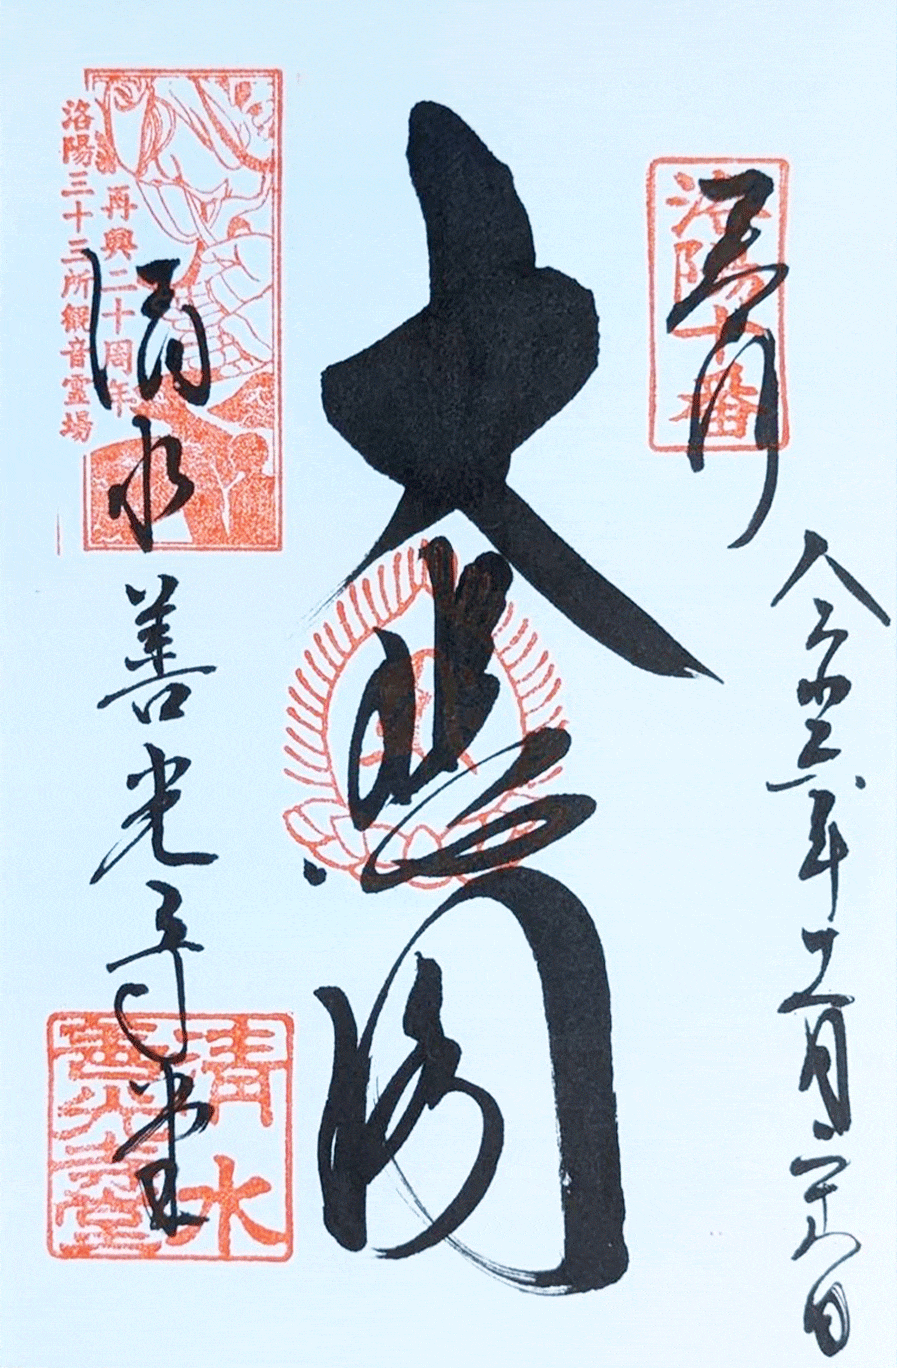 奉拝
洛陽十番
令和六年十二月二十八日
大悲閣
再興二十周年
洛陽三十三所観音霊場
清水
善光寺堂
清水
善光寺堂